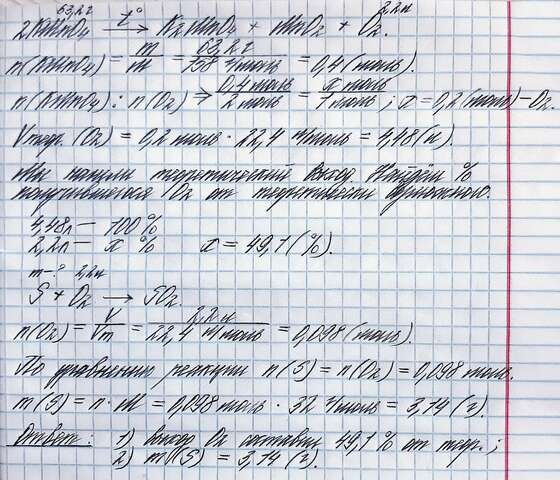 63,2г 2,2л
2KMnO₄ —t°→ K₂MnO₄ + MnO₂ + O₂.
n(KMnO₄) = m/M = 63,2 г/158 г/моль = 0,4 (моль).
n(KMnO₄) : n(O₂) → 0,4 моль/2 моль = x моль/1 моль ; x = 0,2 (моль) – O₂.
Vтеор. (O₂) = 0,2 моль · 22,4 л/моль = 4,48 (л).
Мы нашли теоретический выход. Найдём %
получившегося O₂ от теоретически возможного.
4,48л — 100 %
2,2л — x % x = 49,1 (%).
m-? 2,2л
S + O₂ → SO₂.
n(O₂) = V/Vm = 2,2 л/22,4 л/моль = 0,098 (моль).
По уравнению реакции n(S) = n(O₂) = 0,098 моль.
m(S) = n · M = 0,098 моль · 32 г/моль = 3,14 (г).
Ответ: 1) выход O₂ составил 49,1 % от теор.;
2) m (S) = 3,14 (г).